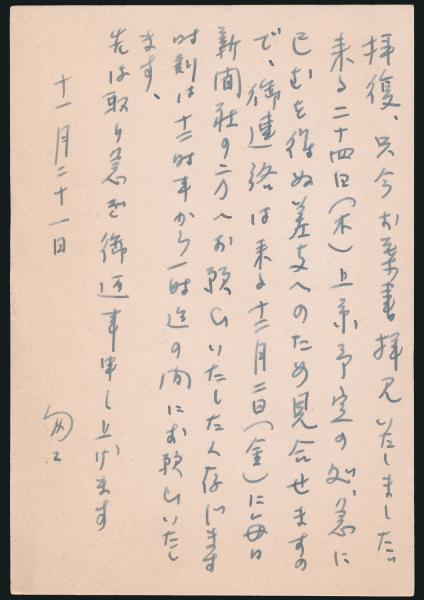 拝復、只今お葉書拝見いたしました。
来る二十四日（木）上京予定の処、急に
已むを得ぬ差支へのため見合せますの
で、御連絡は来る十二月二日（金）に毎日
新聞社の方へお願ひいたしたく存じます
時刻は十二時半から一時迄の間にお願ひいたし
ます、
先は取り急ぎ御返事申し上げます
十一月二十一日